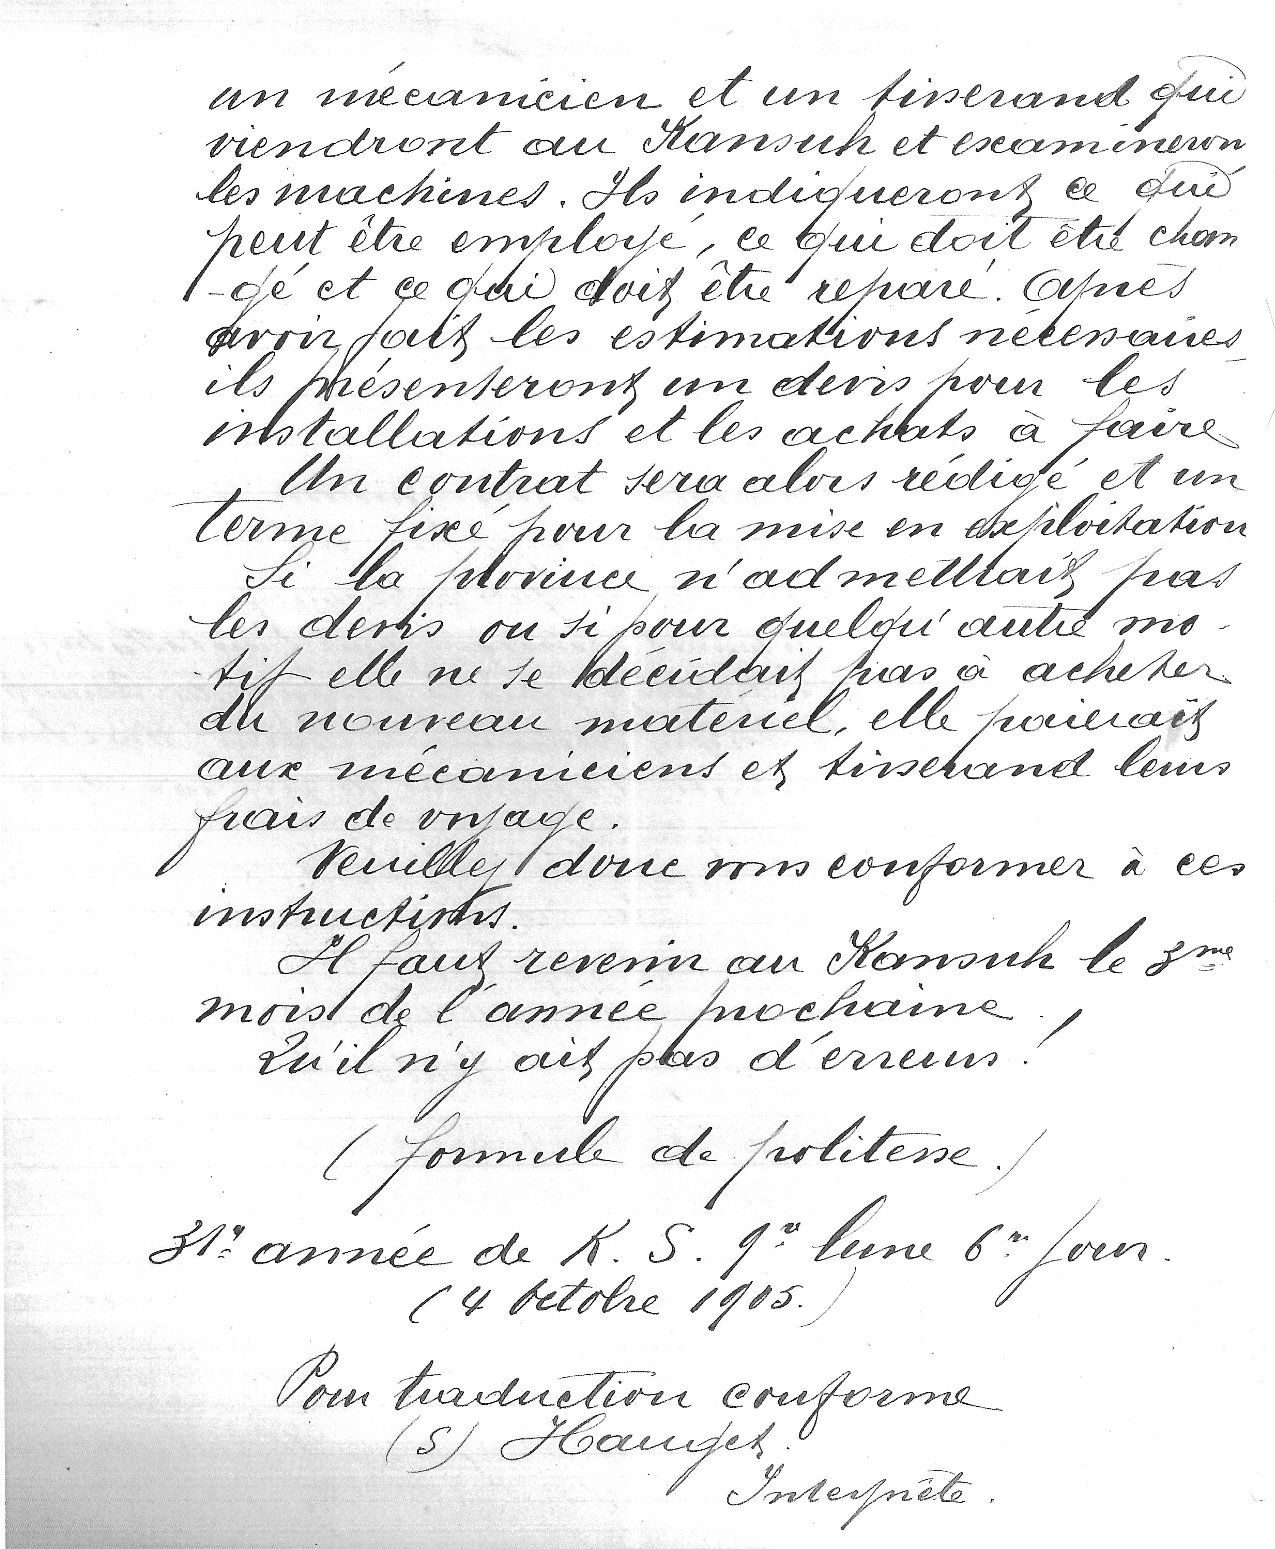 un mécanicien et un tisserand qui
viendront au Kansuh et examineron
les machines. Ils indiqueront ce qui
peut être employé, ce qui doit être chan
-gé et ce qui doit être reparé. Après
avoir fait les estimations nécessaires
ils présenteront un devis pour les
installations et les achats à faire
Un contrat sera alors rédigé et un
terme fixé pour la mise en exploitation
Si la province n'admettait pas
les devis ou si pour quelqu'autre mo-
tif elle ne se décidait pas à acheter
du nouveau matériel, elle paierait
aux mécaniciens et tisserand leurs
frais de voyage.
Veuillez donc vous conformer à ces
instructions.
Il faut revenir au Kansuh le 3me
mois de l'année prochaine.
Qu'il n'y ait pas d'erreurs!
(formule de politesse.)
31e année de K. S. 9e lune 6e jour.
(4 Octobre 1905.)
Pour traduction conforme
(S)
Interprète.